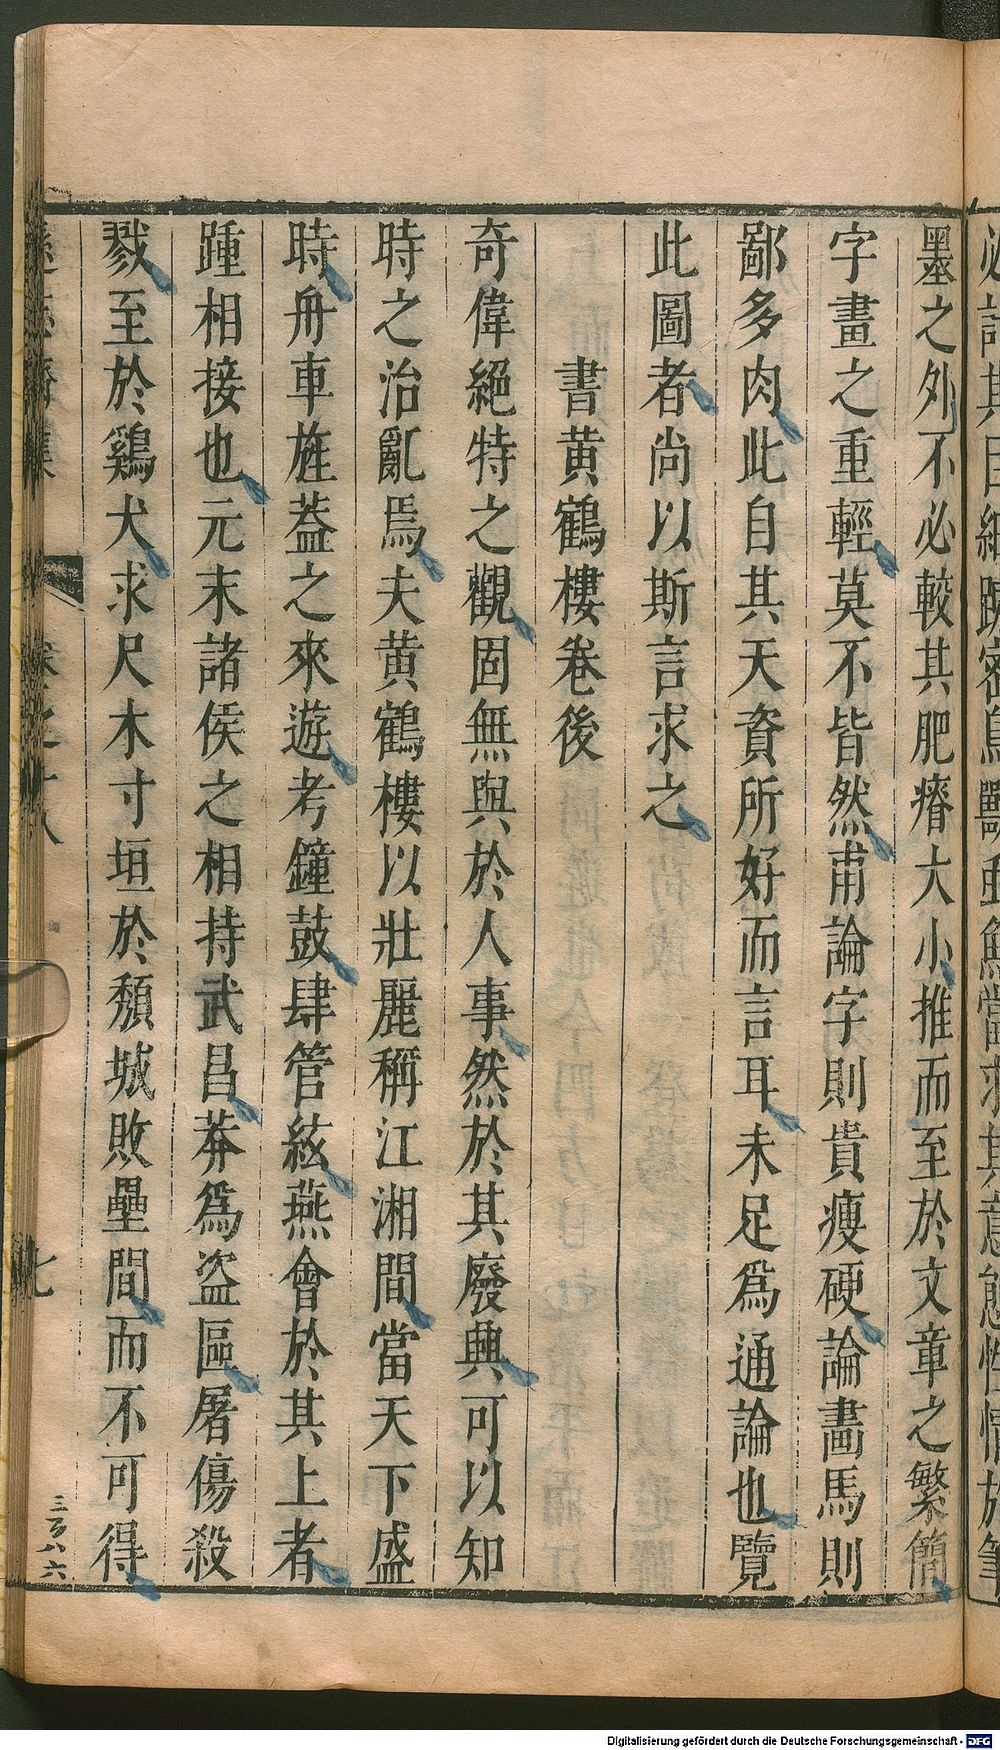 墨之外不必較其肥瘠大小推而至於文章之繁簡
字畫之重輕莫不皆然甫論字則貴瘦硬論畫馬則
鄙多肉此自其天資所好而言耳未足爲通論也覽
此圖者尚以斯言求之
書黄鶴樓卷後
奇偉絕特之觀固無與於人事然於其廢興可以知
時之治亂焉夫黄鶴樓以壯麗稱江湘間當天下盛
時舟車旌葢之來遊考鐘鼓肆管絃燕會於其上者
踵相接也元末諸侯之相持武昌莽爲盗區屠傷殺
戮至於鷄犬求尺木寸垣於頽城敗壘間而不可得
卷之十八
七
三百八六
Digitalisierung gefördert durch die Deutsche Forschungsgemeinschaft - DFG